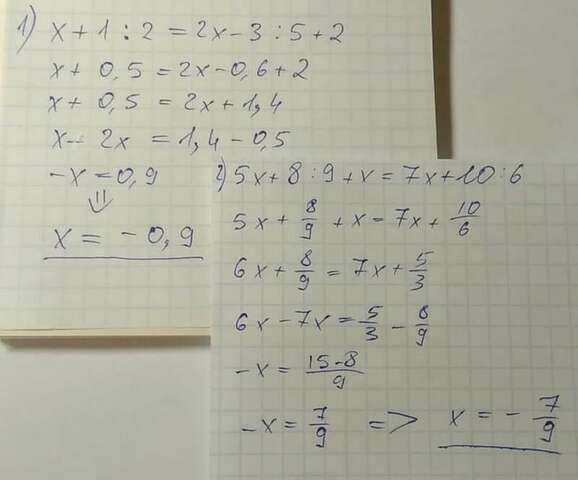 1) x + 1 : 2 = 2x - 3 : 5 + 2
x + 0,5 = 2x - 0,6 + 2
x + 0,5 = 2x + 1,4
x - 2x = 1,4 - 0,5
-x = 0,9
⇓
x = - 0,9
2) 5x + 8 : 9 + x = 7x + 10 : 6
5x + 8/9 + x = 7x + 10/6
6x + 8/9 = 7x + 5/3
6x - 7x = 5/3 - 8/9
-x = 15-8/9
-x = 7/9 => x = - 7/9